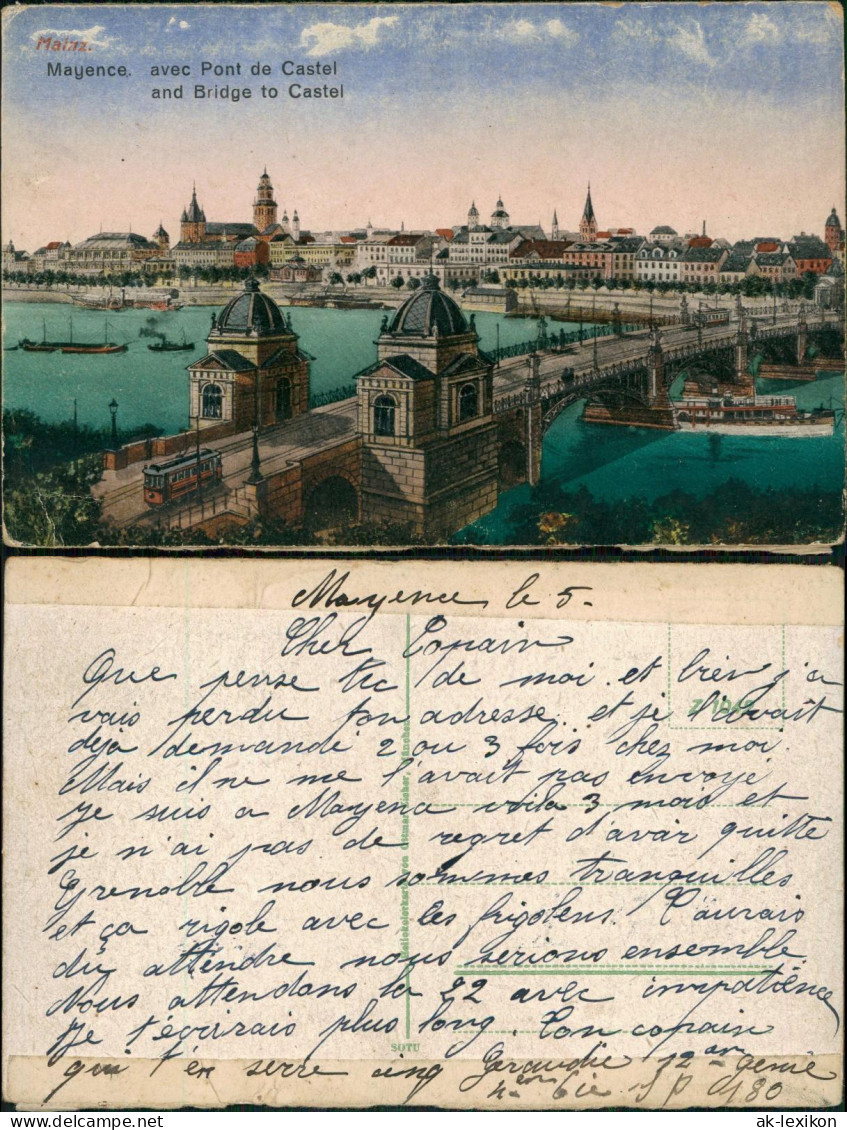 Mainz.
Mayence. avec Pont de Castel
and Bridge to Castel
Mayence le 5.
Cher Copain
Que pense tu de moi et bien j'a
vais perdu ton adresse et je l'avait
deja demandé 2 ou 3 fois chez moi.
Mais il ne me l'avait pas envoyé
je suis a Mayence voila 3 mois et
je n'ai pas de regret d'avoir quitte
Grenoble nous sommes tranquilles
et ça rigole avec les frigolens. T'aurais
dû attendre nous serions ensemble.
Nous attendons la 22 avec impatience
Je t'écrirais plus long. Ton copain
qui t'en serre cinq Garaudie 12 genie
4 Cie S P 180
SOTU
ak-lexikon